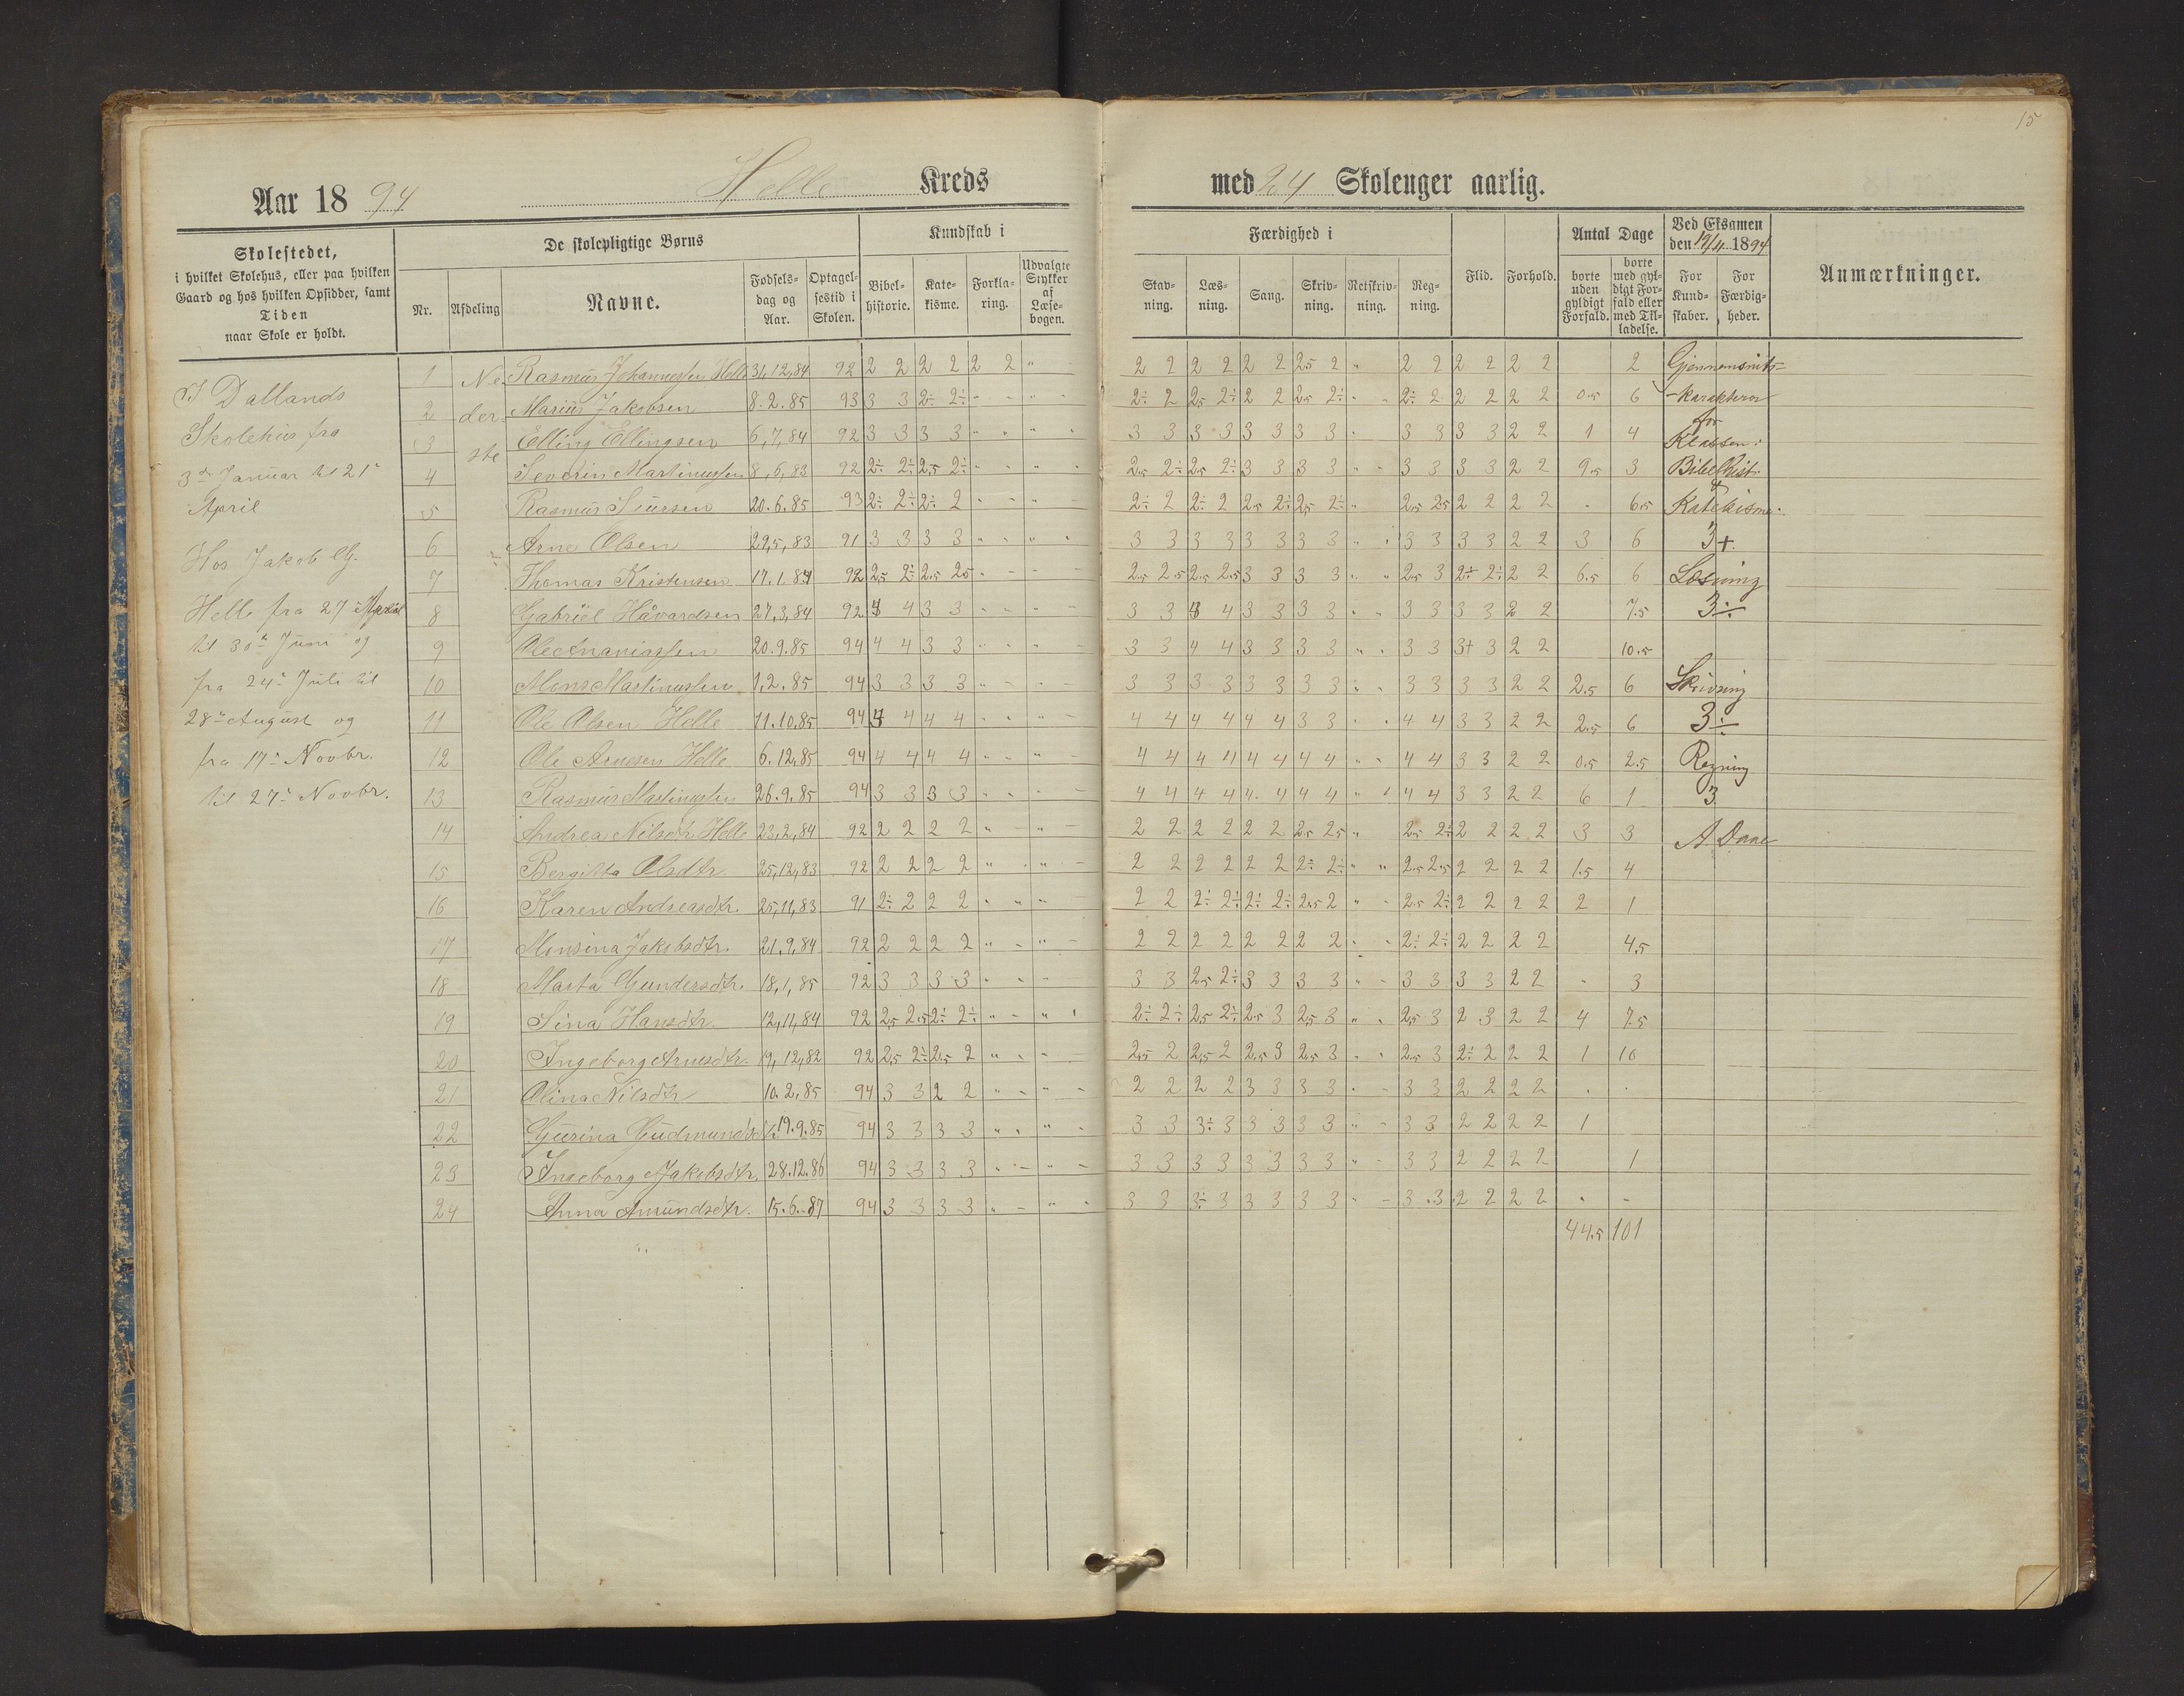 15
Aar 1894 Helle Kreds med 24 Skoleuger aarlig.
Skolestedet,
i hvilket Skolehus, eller paa hvilken
Gaard og hos hvilken Opsidder, samt
Tiden
naar Skole er holdt.
De skolepligtige Børns
Nr.
Afdeling
Navne.
Fødselsdag og Aar.
Optagelsestid i Skolen.
Kundskab i
Bibelhistorie.
Katekisme.
Forklaring.
Udvalgte Stykker af Læsebogen.
Færdighed i
Stavning.
Læsning.
Sang.
Skrivning.
Retskrivning.
Regning.
Flid.
Forhold.
Antal Dage
borte uden gyldigt Forfald.
borte med gyldigt Forfald eller med Tilladelse.
Ved Eksamen
den 19/4 1894
For Kundskaber.
For Færdigheder.
Anmærkninger.
I Dallands
Skolehus fra
3die Januar til 21de
April
Hos Jakob G.
Helle fra 27de April
til 30te Juni og
fra 24de Juli til
28de August og
fra 17de Novbr.
til 27de Novbr.
Ne
der
ste
1 Rasmus Johannessen Helle 31,12,84 92 2 2 2 2 2 2 " - 2 2 2 2 2 2 2,5 2 " 2 2 2 2 2 2 2
2 Marius Jakobsen 8.2.85 93 3 3 2÷ 2÷ - - - - 2÷ 2 2,5 2÷ 2 2 2,5 2÷ - - 2÷ 2 2 2 2 2 0.5 6
3 Elling Ellingsen 6,7,84 92 3 3 3 3 " " " " 3 3 3 3 3 3 3 3 - 3 3 3 3 2 2 1 4
4 Severin Martinussen 8,6,83 92 2÷ 2÷ 2,5 2÷ - - - - 2,5 2÷ 2,5 2÷ 3 3 3 3 - - 3 3 3 3 2 2 9.5 3
5 Rasmus Siursen 20.6.85 93 2÷ 2÷ 2÷ 2 " " " - 2÷ 2 2÷ 2 2,5 2÷ 2,5 2÷ " 2,5 2,5 2 2 2 2 - 6.5
6 Arne Olsen 29,5,83 91 3 3 3 3 - - " " 3 3 3 3 3 3 3 3 " " 3 3 3 3 2 2 3 6
7 Thomas Kristensen 17.1.84 92 2,5 2÷ 2,5 2,5 - - - - 2,5 2,5 2,5 2,5 3 3 3 3 " " 2,5 3 2÷ 2÷ 2 2 6.5 6
8 Gabriel Håvardsen 27,3,84 92 4 4 3 3 - - - - 3 3 4 4 3 3 3 3 - - 3 3 3 3 2 2 7.5
9 Ole Ananiassen 20.9.85 94 4 4 3 3 - - - - 3 3 4 4 3 3 3 3 " " 3 3 3+ 3 2 2 10.5
10 Mons Martinussen 1,2.85 94 3 3 3 3 " - - - 3 3 3 3 3 3 3 3 " " 3 3 3 3 2 2 2.5 6
11 Ole Olsen Helle 11.10.85 94 4 4 4 4 - - " - 4 4 4 4 4 4 3 3 - - 4 4 3 3 2 2 2.5 6
12 Ole Arnesen Helle 6.12.85 94 4 4 4 4 - - " - 4 4 4 4 4 4 4 4 - - 4 4 3 3 2 2 0.5 2.5
13 Rasmus Martinussen 26.9.85 94 3 3 3 3 - - - - 4 4 4 4 4 4 4 4 " " 4 4 3 3 2 2 6 1
14 Andrea Nilsdtr Helle 23,2,84 92 2 2 2 2 " - " - 2 2 2 2 2 2 2,5 2,5 " 2,5 2÷ 2 2 2 2 3 3
15 Bergitta Olsdtr 25,12,83 92 2 2 2 2 " - " - 2 2 2 2 2 2 2÷ 2÷ " " 2,5 2,5 2 2 2 2 1.5 4
16 Karen Andreasdtr. 25,11,83 91 2÷ 2 2 2 " " " - 2 2 2÷ 2÷ 2÷ 2÷ 2,5 2 " - 2,5 2÷ 2 2 2 2 2 1
17 Monsina Jakobsdtr. 21.9.84 92 2 2 2 2 " - " - 2 2 2 2 2 2 2 2 - - 2÷ 2÷ 2 2 2 2 4.5
18 Marta Gundersdtr. 18,1,85 92 3 3 3 3 - - - - 3 3 2,5 2÷ 3 3 3 3 " - 3 3 3 3 2 2 - 3
19 Sina Hansdtr. 12,11,84 92 2,5 2,5 2÷ 2÷ " - " " 2÷ 2÷ 2,5 2÷ 2,5 3 2,5 3 " " 2,5 3 2 3 2 2 4 7.5
20 Ingeborg Arnesdtr. 19,12,82 92 2,5 2÷ 2,5 2 " - - - 2,5 2 2,5 2 2,5 3 2,5 3 - - 2,5 3 2÷ 2 2 2 1 10
21 Olina Nilsdtr 10.2.85 94 3 3 2 2 " - " - 2 2 2 2 3 3 3 3 - - 3 3 2 2 2 2 - -
22 Gurina Gudmundsdtr. 19.9.85 94 3 3 3 3 " " " - 3 3 3÷ 3 3 3 3 3 " - 3 3 2 2 2 2 1
23 Ingeborg Jakobsdtr. 28.12.86 94 3 3 3 3 " - " - 3 3 3 3 3 3 3 3 " - 3 3 2 2 2 2 1
24 Anna Amundsdtr. 15.6.87 94 3 3 3 3 " - " - 3 3 3÷ 3 3 3 3 3 - - 3 3 2 2 2 2 - -
44.5 101
Gjennemsnits=
-karakterer
for
Klassen:
Bibelhist.
&
Katekisme:
3+.
Læsning
3÷
Skrivning
3÷
Regning
3.
A Daae